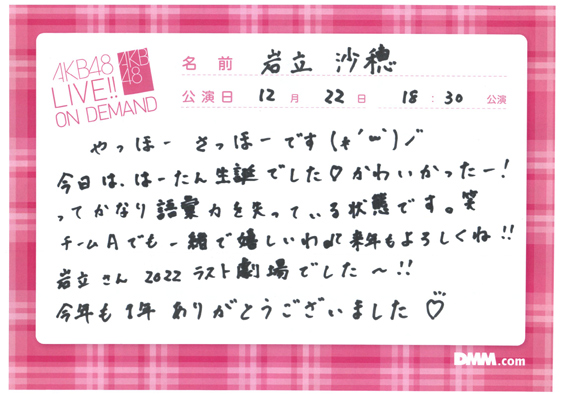 AKB48
LIVE!!
ON DEMAND
AKB
48
名前 岩立 沙穂
公演日 12月 22日 18:30 公演
やっほー さっほーです(*'ω')ノ
今日は、はーたん生誕でした♡かわいかったー!
ってかなり語彙力を失っている状態です。笑
チームAでも一緒で嬉しいわ♪来年もよろしくね!!
岩立さん 2022 ラスト劇場でした〜!!
今年も1年 ありがとうございました♡
DMM.com